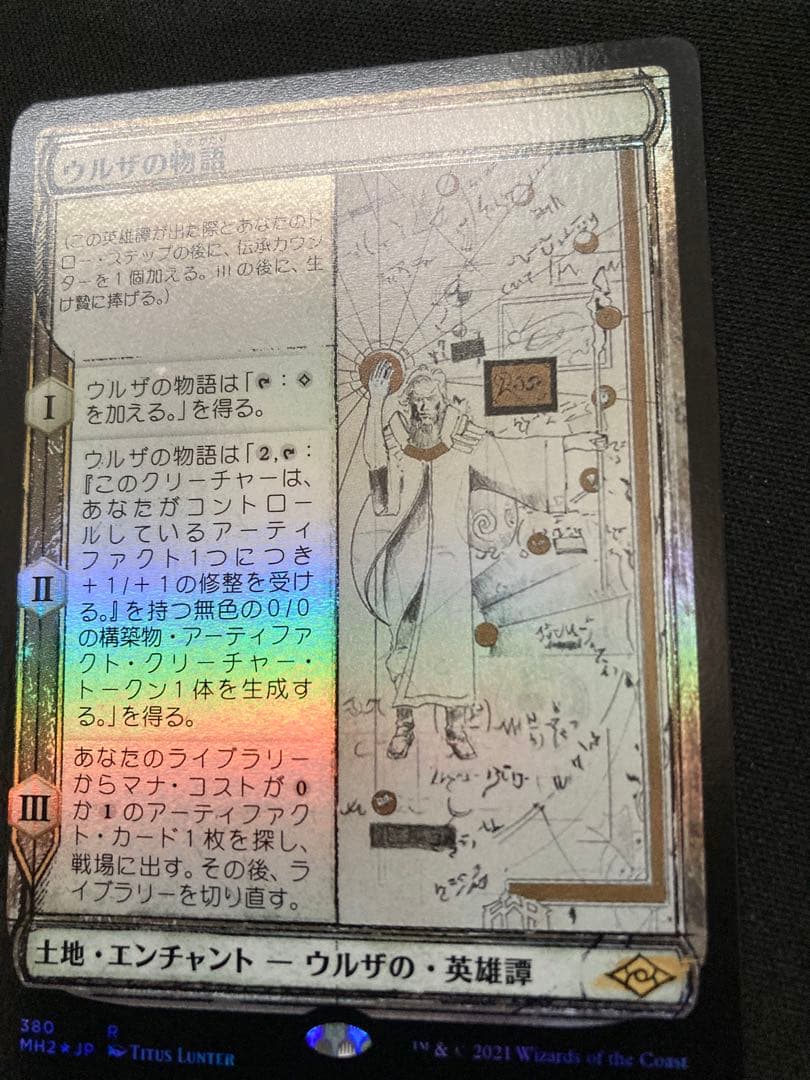 ウルザの物語
(この英雄譚が出た際とあなたのド
ロー・ステップの後に、伝承カウン
ターを1個加える。IIIの後に、生
け贄に捧げる。)
I
ウルザの物語は「:
を加える。」を得る。
II
ウルザの物語は「2,:
『このクリーチャーは、
あなたがコントロー
ルしているアーティ
ファクト1つにつき
+1/+1の修整を受け
る。』を持つ無色の0/0
の構築物・アーティファ
クト・クリーチャー・
トークン1体を生成す
る。」を得る。
III
あなたのライブラリー
からマナ・コストが0
か1のアーティファク
ト・カード1枚を探し、
戦場に出す。その後、ラ
イブラリーを切り直す。
土地・エンチャント — ウルザの・英雄譚
380 R
MH2★JP TITUS LUNTER
™ & © 2021 Wizards of the Coast